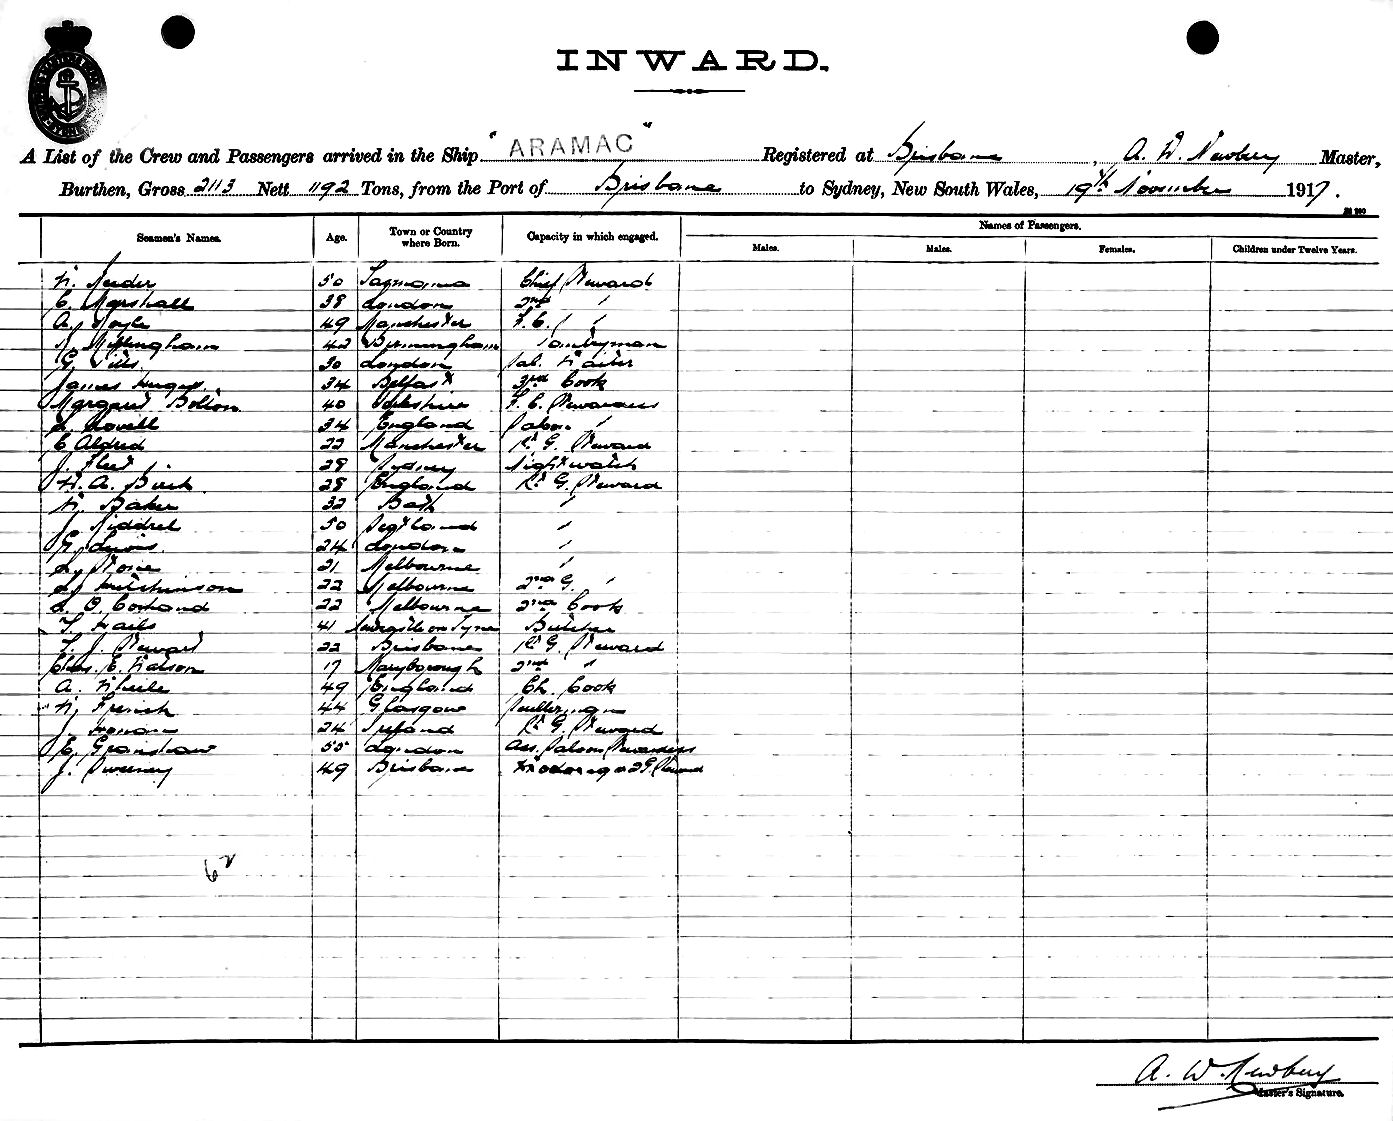 INWARD.
A List of the Crew and Passengers arrived in the Ship "ARAMAC" Registered at Brisbane, A. W. Newbery Master,
Burthen, Gross 2113 Nett 1192 Tons, from the Port of Brisbane to Sydney, New South Wales, 19th November 1917.
Seamen's Names. Age. Town or Country where Born. Capacity in which engaged. Names of Passengers.
Males. Males. Females. Children under Twelve Years.
50 Tasmania Chief Steward
C. Marshall 38 London 2nd "
A. Hoyle 49 Manchester F.C. " "
42 Birmingham Pantryman
G. 30 London Sal. Waiter
James 34 Belfast 3rd Cook
Margaret Bolton 40 Yorkshire F.C. Stewardess
Lovell 34 England Saloon "
E Aldred 22 Manchester Steward
J. Fleet 29 Sydney Nightwatch
W. A. Birch 28 England Steward
W. Baker 32 Bath "
J. Riddel 50 Scotland "
G. Lewis 24 London "
21 Melbourne "
Hutchinson 22 Melbourne 2nd G. "
22 Melbourne 2nd Cook
41 Newcastle on Tyne Butcher
J. Steward 22 Brisbane Steward
Chas. E. Watson 17 Maryborough 2nd "
A. 49 England Ch. Cook
W. French 44 Glasgow
J. 24 Ireland Steward
E. Granshaw 55 London Ass. Saloon Stewardess
J. Sweeney 49 Brisbane
62
A. W. Newbery
Master's Signature.